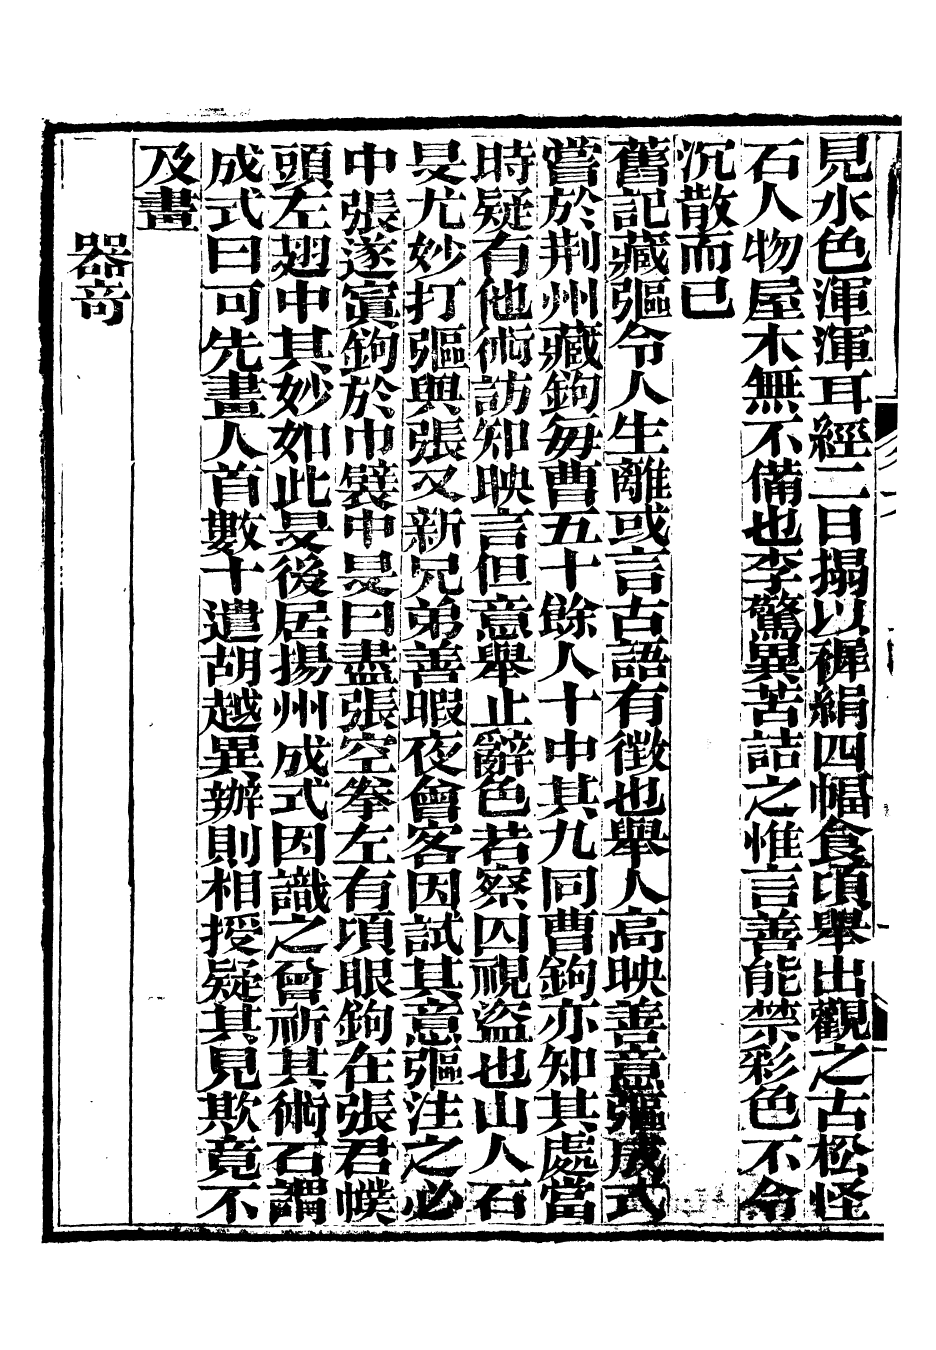 見水色渾渾耳經二日搨以稺絹四幅食頃舉出觀之古松怪
石人物屋木無不備也李驚異苦詰之惟言善能禁彩色不令
沉散而已
舊記藏彄令人生離或言古語有徵也舉人高映善意彄成式
嘗於荆州藏鉤每曹五十餘人十中其九同曹鉤亦知其處當
時疑有他術訪知映言但意舉止辭色若察囚視盜也山人石
旻尤妙打彄與張又新兄弟善暇夜會客因試其意彄注之必
中張遂寘鉤於巾襞中旻曰盡張空拳左有項眼鉤在張君幞
頭左翅中其妙如此旻後居揚州成式因識之曾祈其術石謂
成式曰可先畫人首數十遣胡越異辦則相授疑其見欺竟不
及畫
器奇